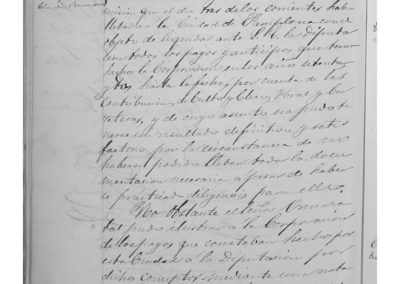 misia que el dia tres de los corrientes habia
llebado en la Ciudad de Pamplona con el
objeto de liquidar ante S. E. la Diputa
cion todos los pagos y anticipos que tenia
hechos la Corporacion en los años setenta
y dos hasta la fecha, por cuenta de las
Contribuciones de Culto y Clero, Foral y Ca
, y de cuyo asunto no pudo te
nerse un resultado definitivo y satis
factorio por la circunstancia de no
haber podido llebar toda la docu
mentacion necesaria a pesar de haber
se practicado diligencias para ello.
No obstante el Señor
bal pudo ilustrar a la Corporacion
de los pagos que constaban hechos por
esta Ciudad a la Diputacion por
dichos conceptos mediante una nota